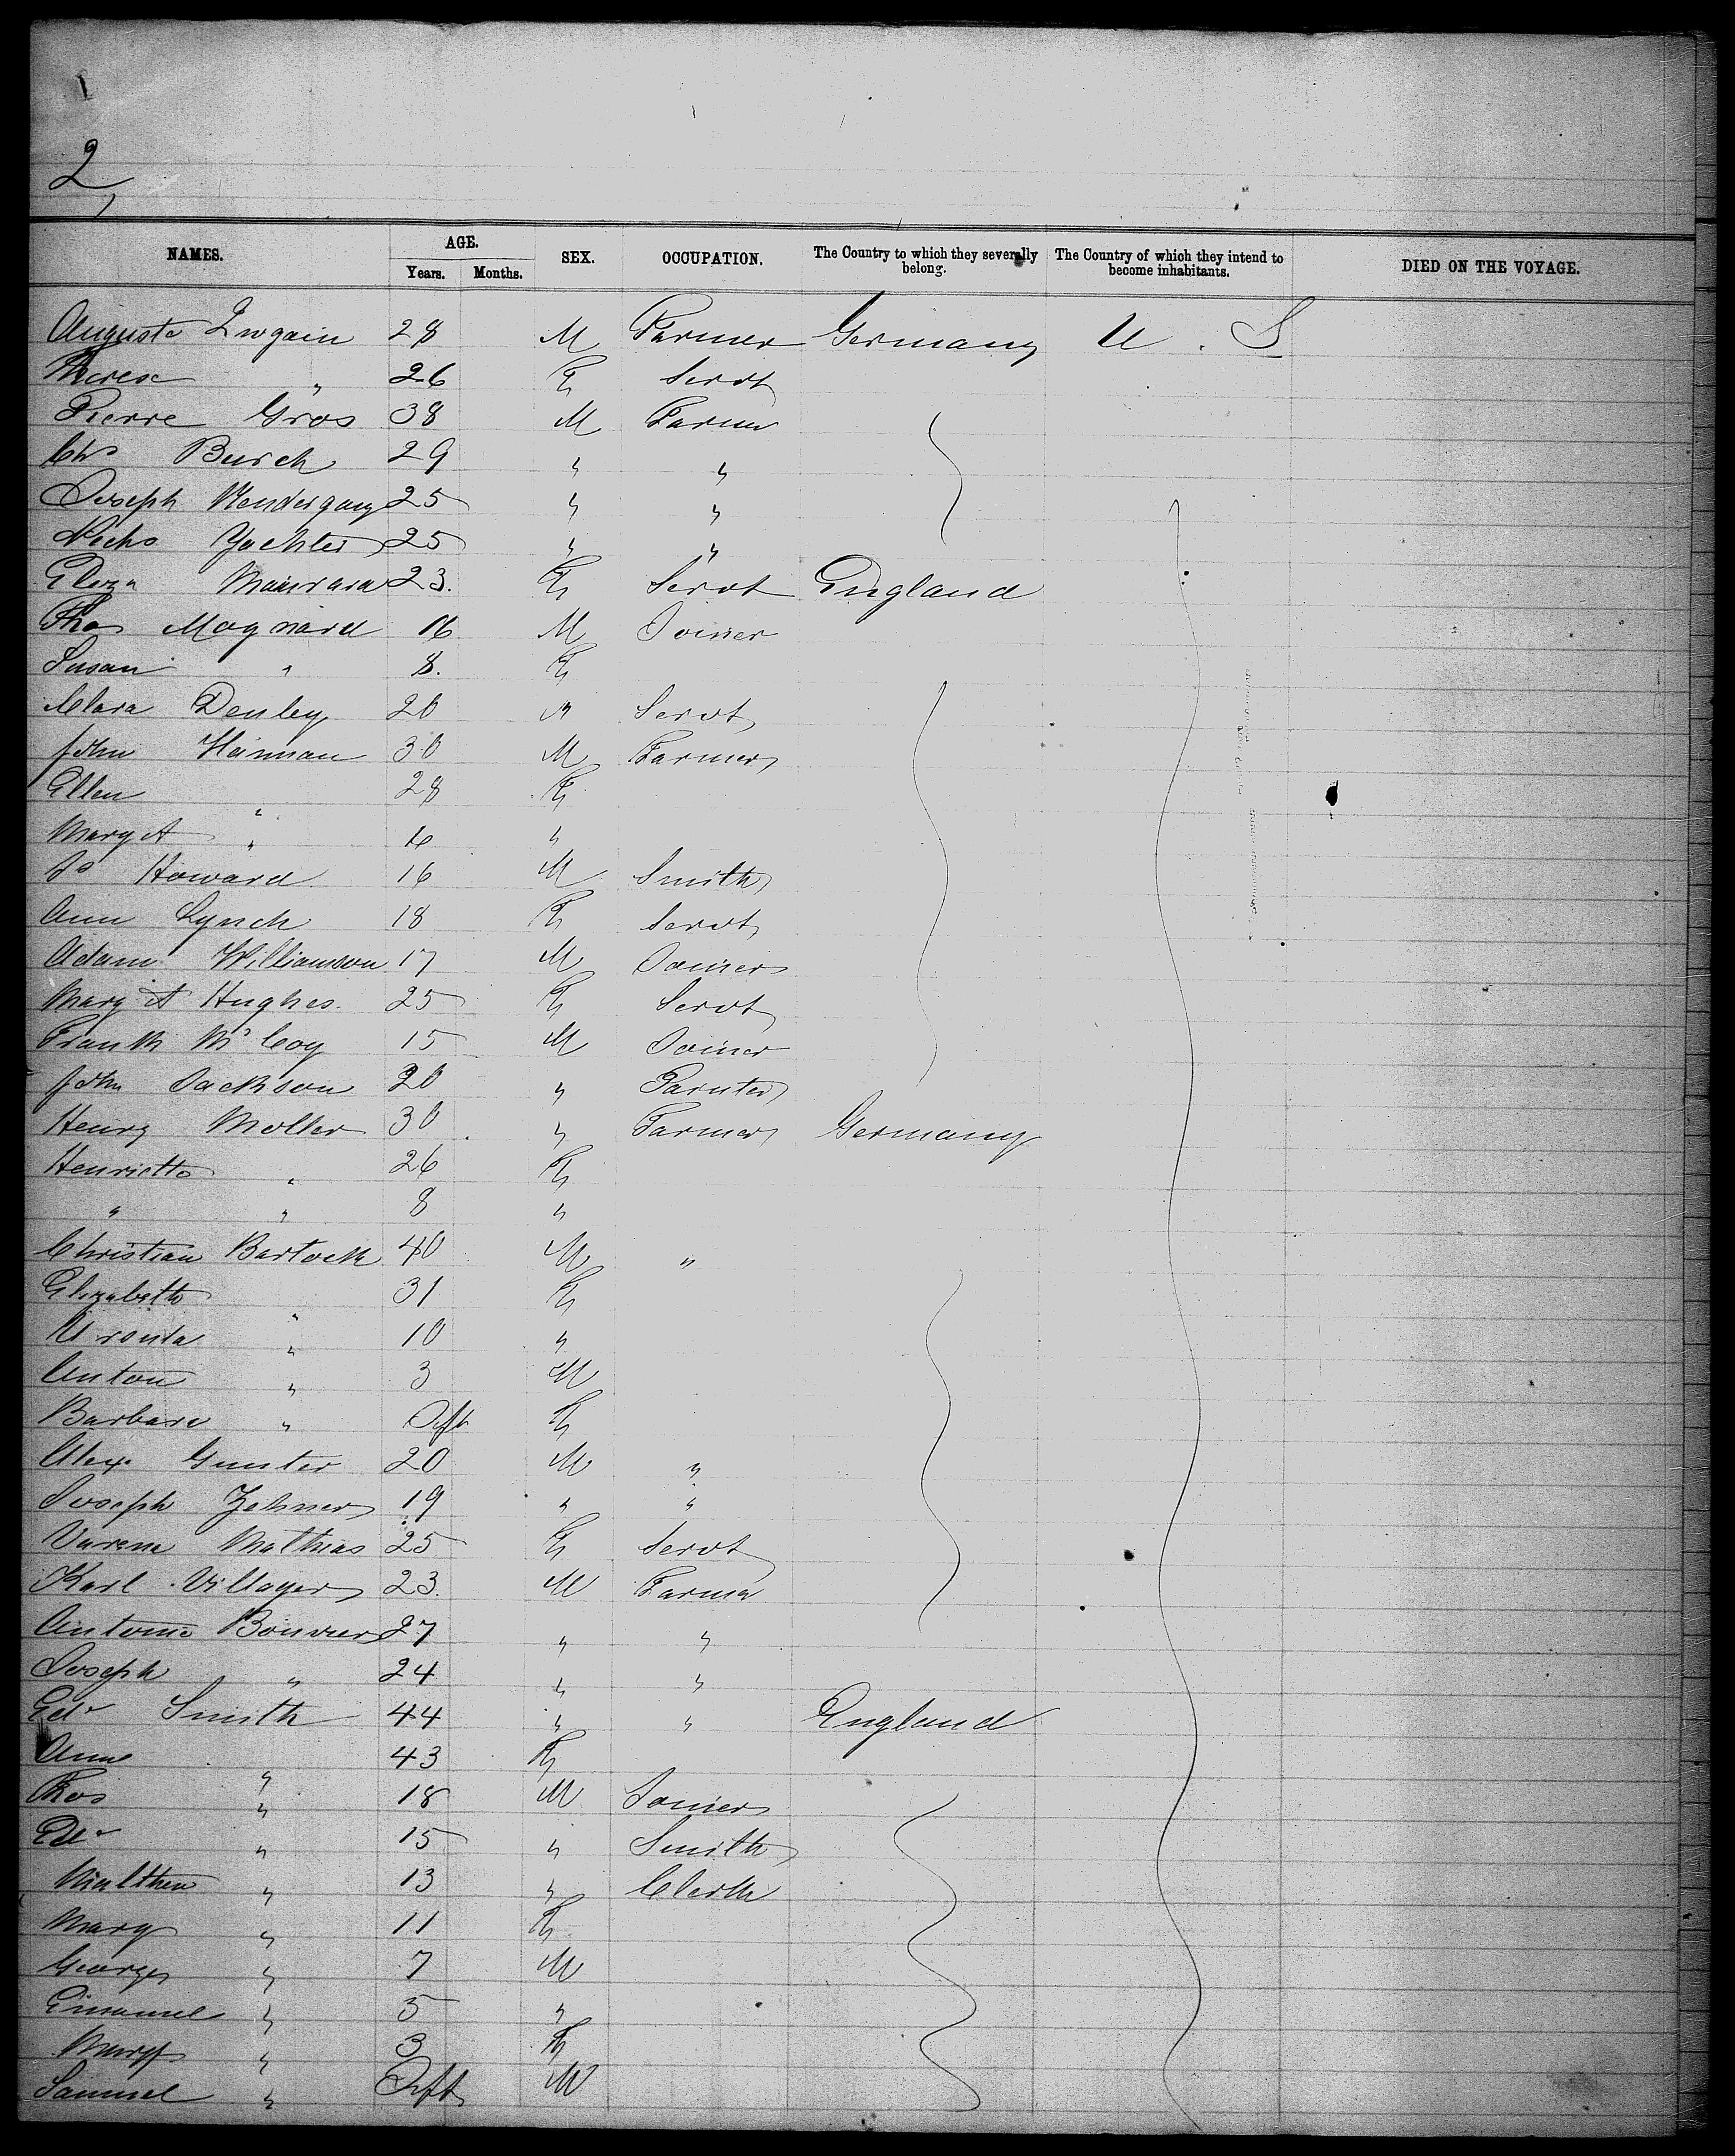 2
NAMES. AGE. SEX. OCCUPATION. The Country to which they severally belong. The Country of which they intend to become inhabitants. DIED ON THE VOYAGE.
Years. Months.
Auguste 28 M Farmer Germany U. S
Theresa " 26 F Servt
Pierre Gros 38 M Farmer
Chs Burch 29 " "
Joseph 25 " "
Nichs 25 " "
Eliza 23. F Servt England
Thos Maynard 16 M Joiner
Susan " 8. F
Clara Denley 20 " Servt
John Hannan 30 M Farmer
Ellen " 28 F
Mary A " "
Js Howard 16 M Smith
Ann Lynch 18 F Servt
Adam Williamson 17 M Joiner
Mary A Hughes 25 F Servt
Frank McCoy 15 M Joiner
John Jackson 20 " Painter
Henry Moller 30 " Farmer Germany
Henrietta " 26 F
" " 8 "
Christian Bartock 40 M "
Elizabeth " 31 F
" 10 "
Anton " 3 M
Barbara " Inft F
Alex. Gunter 20 M "
Joseph Zehner 19 " "
Mathias 25 F Servt
Karl Villager 23. M Farmer
Antoine Bouvier 27 " "
Joseph " 24 " "
Edw Smith 44 " " England
Anne " 43 F
Thos " 18 M Joiner
Edw " 15 " Smith
Matthew " 13 " Clerk
Mary " 11 F
George " 7 M
Emanuel " 5 "
Margt " 3 F
Samuel " Inft M